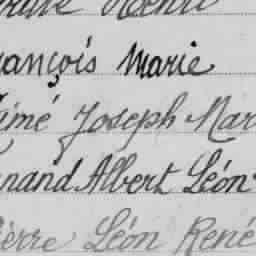 ançois Marie
imé Joseph Mar
nand Albert Léon
ierre Léon René